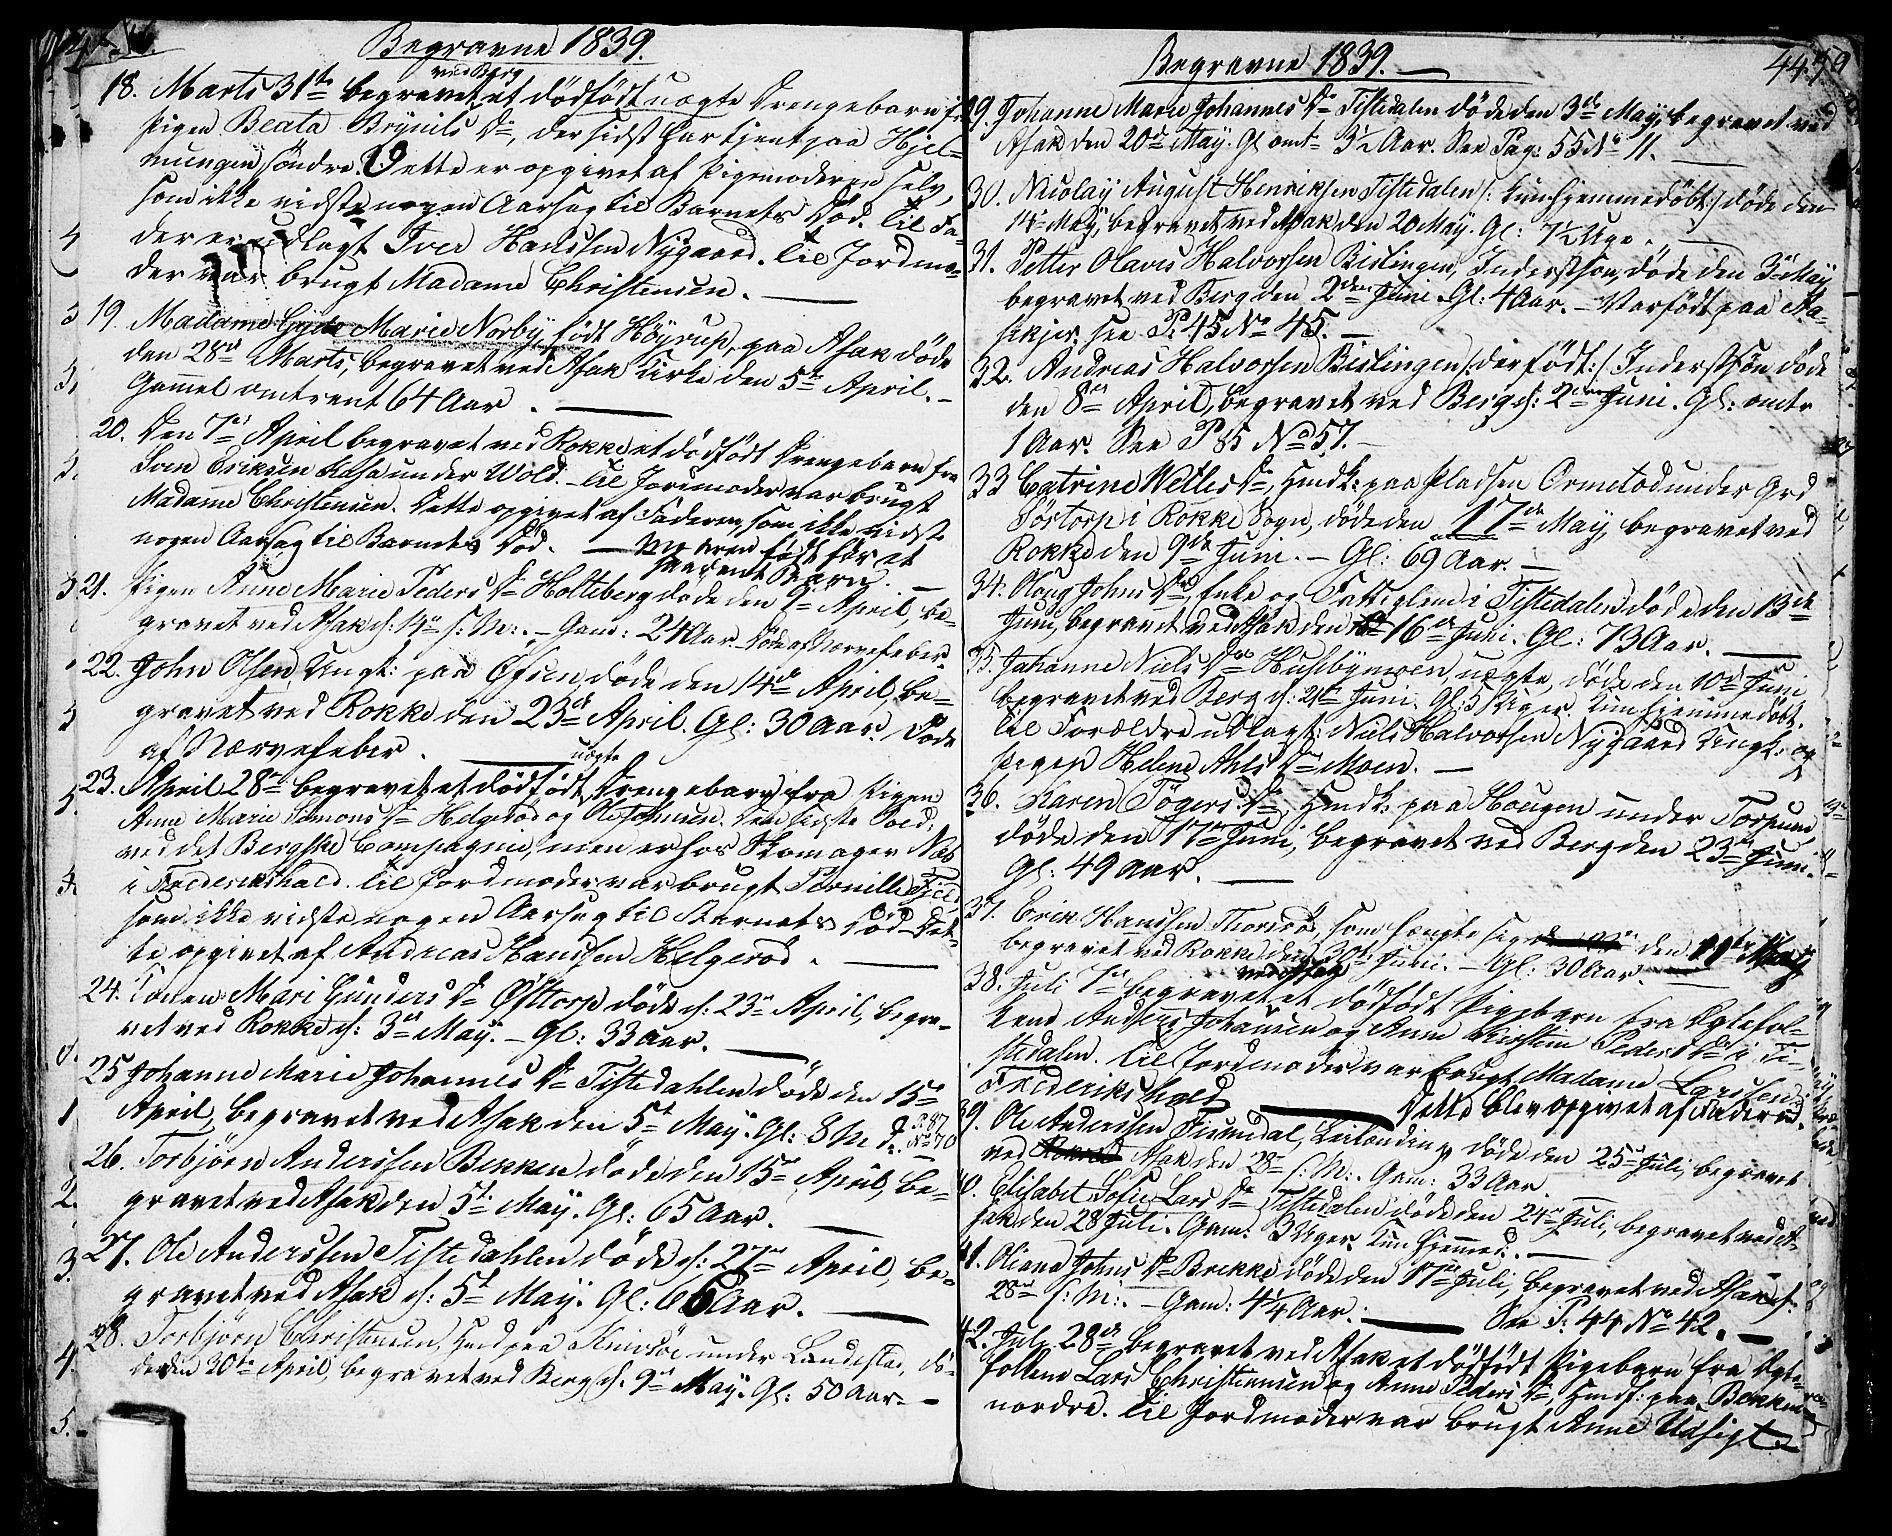 Begravne 1839.
18. Marts 31te begravet ved Berg et dödfödt uægte Drengebarn fr
Pigen Beata Brynils Dr, der sidst har tjent paa Hjel-
mungen söndre. Dette er opgivet af Pigemoderen selv,
som ikke vidste nogen Aarsag til Barnets Död. Til Fa-
der er udlagt Iver Hanssen Nygaard. Til Jordmo-
der var brugt Madame Christensen.
19. Madame Gjide Marie Norby, födt Höyrup, paa Asak döde
den 28de Marts, begravet ved Asak Kirke den 5te April. -
Gammel omtrent 64 Aar.
20. Den 7de April begravet ved Rokke et dödfödt Drengebarn fra
Sven Eriksen Aasa under Wold. - Til Jordmoder var brugt
Madame Christensen. Dette opgivet af Faderen, som ikke vidste
nogen Aarsag til Barnets Död. - Moderen födt för et
saadant Barn. -
21. Pigen Anne Marie Peders Dr Holteberg döde den 9de April, be-
gravet ved Asak d: 14de s: M:. - Gam: 24 Aar. Döde af Nærvefeber.
22. John Olsen, Ungk: paa Öfsen, döde den 14de April, be-
gravet ved Rokke den 23de April. Gl: 30 Aar. Döde
af Nærvefeber.
23. April 28de begravet et dödfödt uægte Drengebarn fra Pigen
Anne Marie Simons Dr Helgeröd og Ole Johnsen. Den sidste Sold:
ved det Bergske Compagnie, men er hos Skomager Næs
i Frederikshald. Til Jordmoder var brugt Pernille Fjeld,
som ikke vidste nogen Aarsag til Barnets Död. Det-
te opgivet af Andreas Hanssen Helgeröd.
24. Konen Mari Gunders Dr Östtorp döde d: 23de April, begra-
vet ved Rokke d: 3de May. - Gl: 33 Aar.
25 Johanne Marie Johannes Dr Tistedahlen döde den 15de
April, begravet ved Asak den 5te May. Gl: 8 M d. P: 87
No 70
26. Torbjörn Anderssen Bekken döde den 15de April, be-
gravet ved Asak den 5te May. Gl: 65 Aar.
27. Ole Anderssen Tistedahlen döde d: 27de April, be-
gravet ved Asak d: 5te May. Gl: 66 Aar.
28. Torbjörn Christensen, Hmd paa Knivsöe under Landestad, dö-
de den 30te April, begravet ved Berg d: 9de May. Gl: 50 Aar. -
Begravne 1839. -
29. Johanne Marie Johannes Dr Tistedalen döde den 3de May, begravet ved
Asak den 20de May. Gl omtr 3½ Aar. See Pag: 55 No 11.
30. Nicolay August Henriksen Tistedalen /: kun hjemmedöbt :/ döde den
14de May, begravet ved Asak den 20 May. Gl: 7½ Uge.
31. Petter Olaves Halvorsen Bislingen, Inderstsön, döde den 3de May
begravet ved Berg den 2den Juni. Gl: 4 Aar. - Var födt paa Na-
skjer, see P: 45 No 45. -
32. Andreas Halvorsen Bislingen /: der födt :/ Inderstsön döde
den 8de April, begravet ved Berg d: 2den Juni. Gl: omtr
1 Aar. See P 85 No 57. -
33 Catrine Nilles Dr, Hmdk: paa Pladsen Ormetod under Grd
Törtorp i Rokke Sogn, döde den 17de May, begravet ved
Rokke den 9de Juni. - Gl: 69 Aar. -
34. Johns Dr, Enke og Fattiglem i Tistedalen döde den 13de
Juni, begravet ved Asak den 16de Juni. Gl: 73 Aar.
35. Johanne Niels Dr Husebymoen, uægte, döde den 10de Juni,
begravet ved Berg d: 21te Juni. Gl: 5 Uger. Kun hjemmedöbt.
Til Forældre udlagt: Niels Halvorsen Nygaard Ungk: og
Pigen Helene Ahls Dr Moen. -
36. Karen Tögers Dr, Hmdk: paa Hougen under Torpum,
döde den 17de Juni, begravet ved Berg den 23de Juni.
Gl: 49 Aar.
37. Erik Hanssen Thoreröd, som hængte sig den 11te May
begravet ved Rokke den 30te Juni. - Gl: 30 Aar.
38. Juli 7de begravet ved Asak et dödfödt Pigebarn fra Ægtefol-
kene Anders Johansen og Anne Kirstine Peders Dr i Ti-
stedalen. Til Jordmoder var brugt Madame Larssen i
Frederikshald. Dette blev opgivet af Faderen.
39. Ole Anderssen Firendal, Leilænding, döde den 25de Juli, begravet
ved Asak den 28de s: M:. Gam: 33 Aar.
40. Elisabet Sofie Lars Dr Tistedalen döde den 24de Juli, begravet ved A-
sak den 28 Juli. Gam: 3 Uger. Kun hjemmed: -
41. Oliane Johns Dr Brekke döde den 17de Juli, begravet ved Asak d:
28de s: M:. - Gam: 4¼ Aar. See P: 44 No 42. -
42. Juli 28de begravet ved Asak et dödfödt Pigebarn fra Ægte-
folkene Lars Christensen og Anne Peders Dr, Hmdf: paa Bekken
nordre. Til Jordmoder var brugt Anne Udsigt.